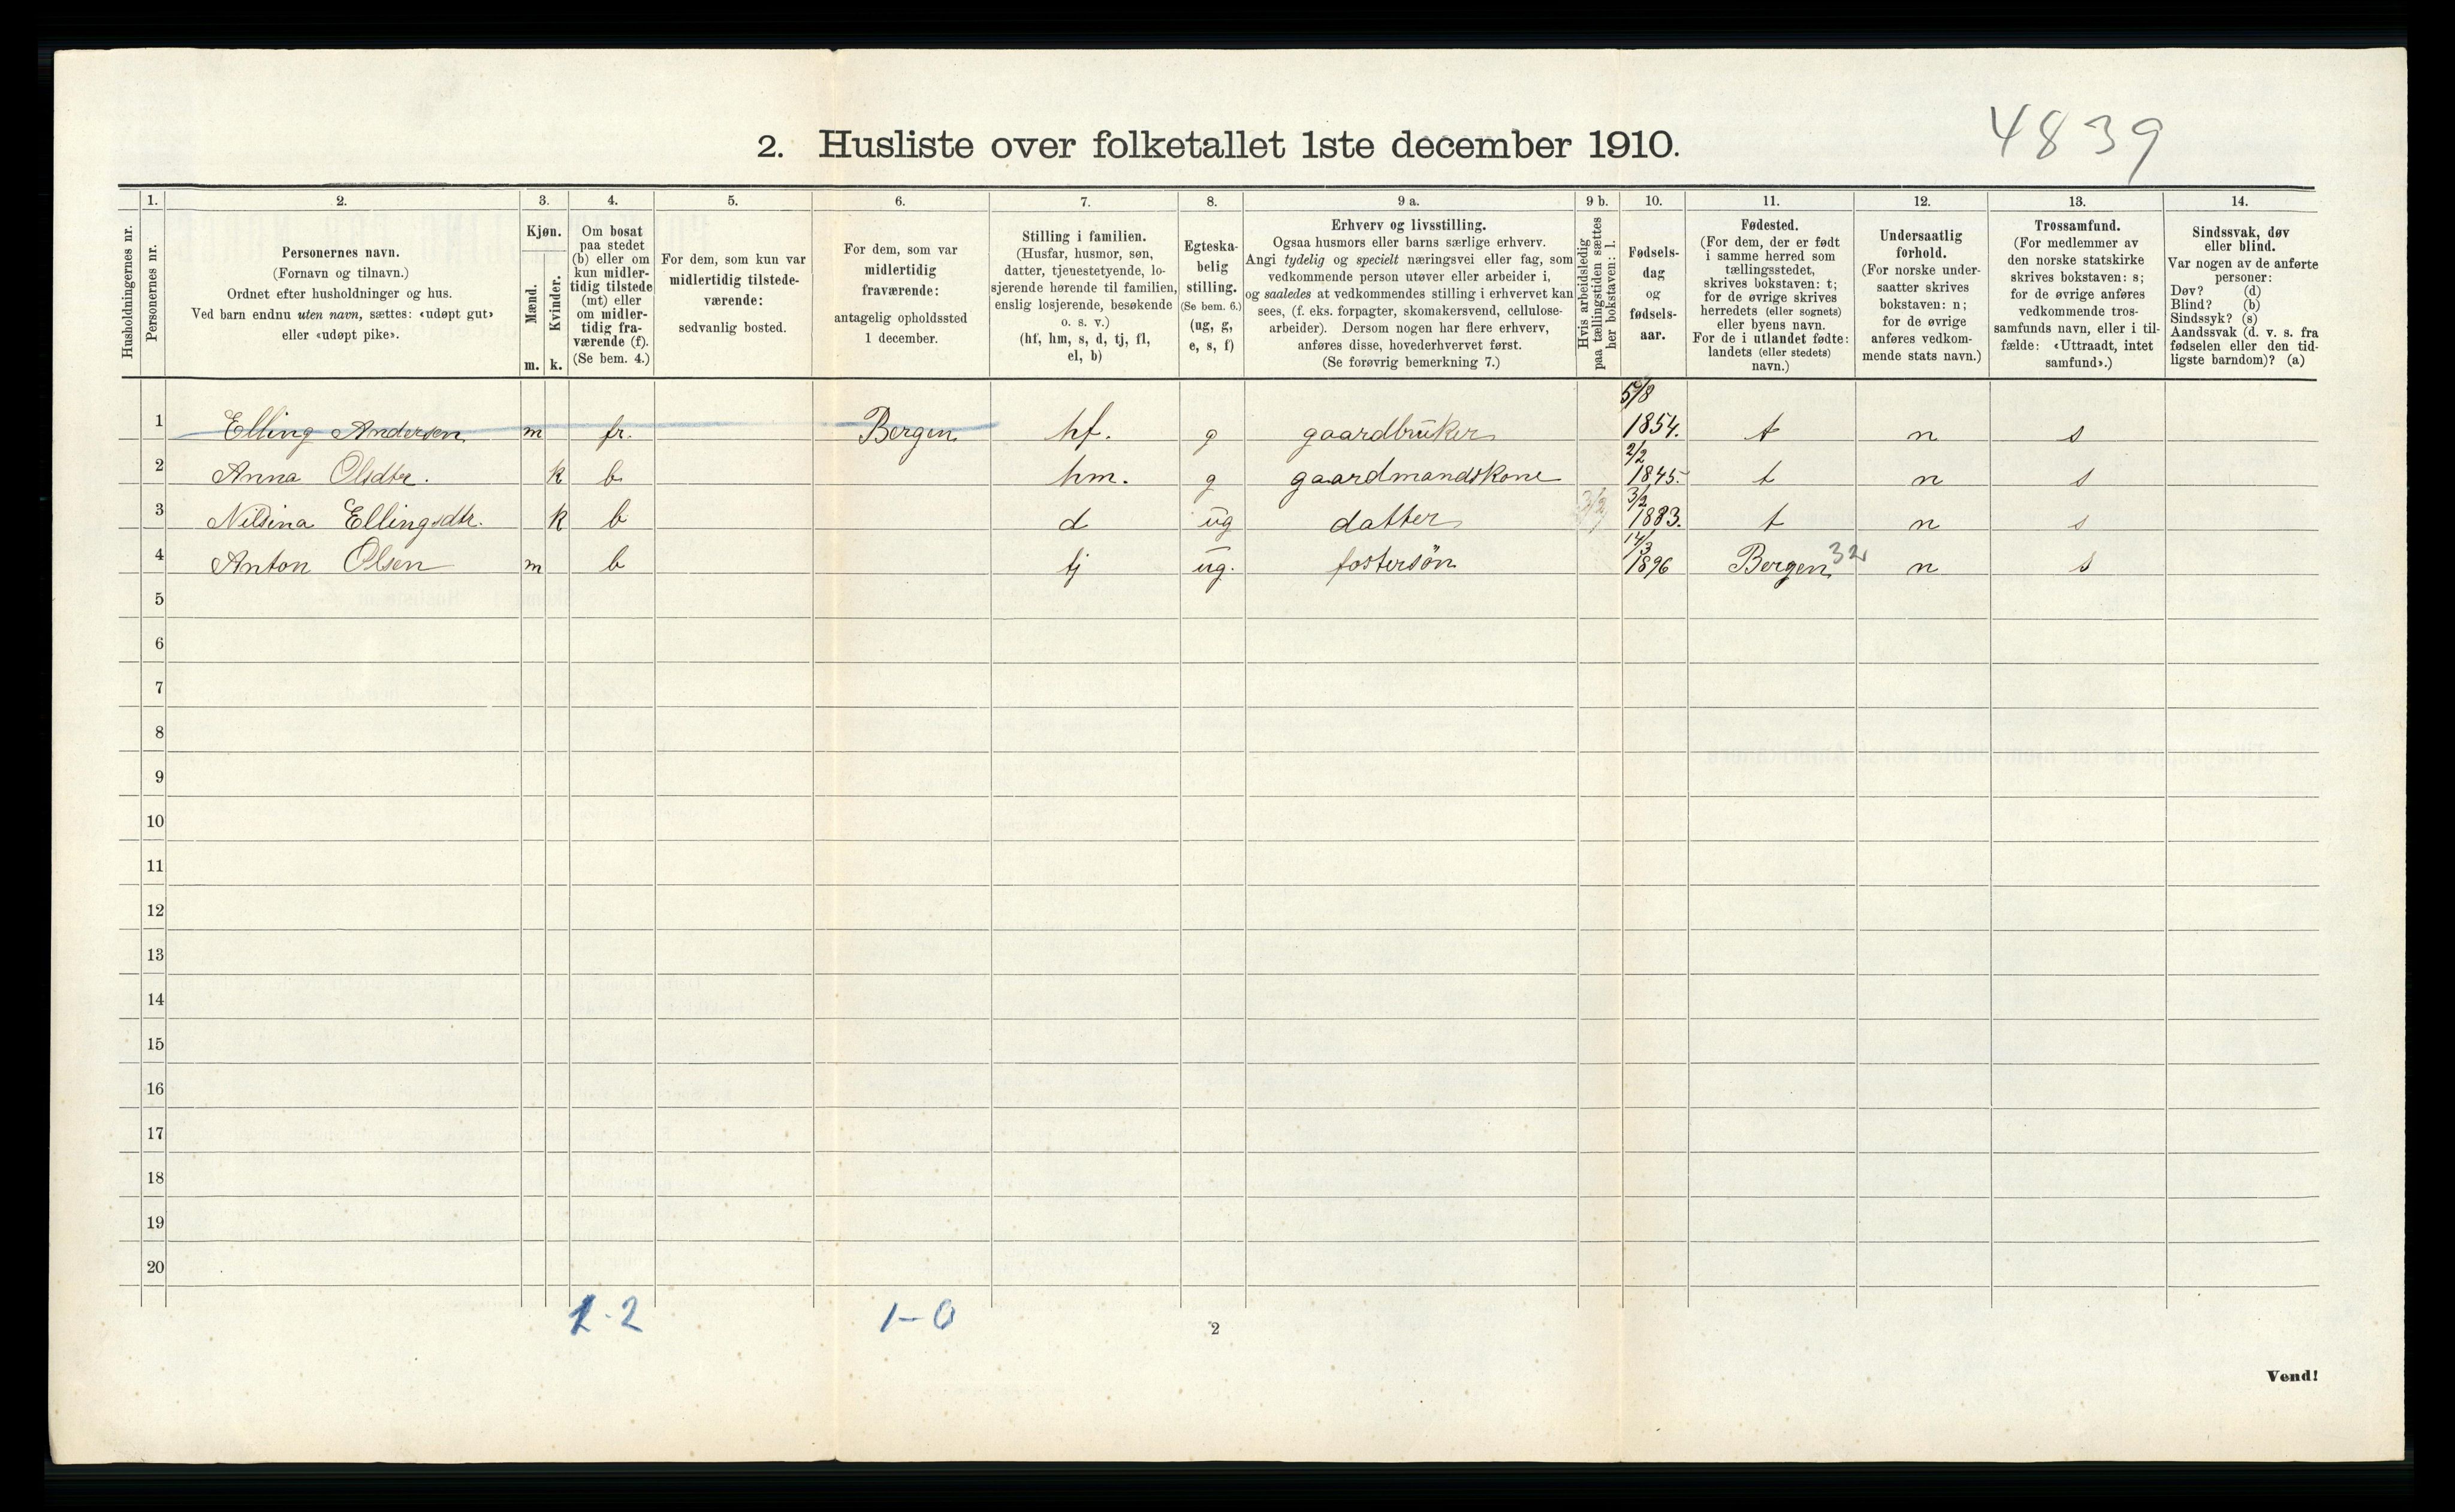 4839
2. Husliste over folketallet 1ste december 1910.
Husholdningernes nr.
1.
Personernes nr.
2.
Personernes navn.
(Fornavn og tilnavn.)
Ordnet efter husholdninger og hus.
Ved barn endnu uten navn, sættes: «udøpt gut»
eller «udøpt pike».
3.
Kjøn.
Mænd.
Kvinder.
m. k.
4.
Om bosat
paa stedet
(b) eller om
kun midler-
tidig tilstede
(mt) eller
om midler-
tidig fra-
værende (f).
(Se bem. 4.)
5.
For dem, som kun var
midlertidig tilstede-
værende:
sedvanlig bosted.
6.
For dem, som var
midlertidig
fraværende:
antagelig opholdssted
1 december.
7.
Stilling i familien.
(Husfar, husmor, søn,
datter, tjenestetyende, lo-
sjerende hørende til familien,
enslig losjerende, besøkende
o. s. v.)
(hf, hm, s, d, tj, fl,
el, b)
8.
Egteska-
belig
stilling.
(Se bem. 6.)
(ug, g,
e, s, f)
9 a.
Erhverv og livsstilling.
Ogsaa husmors eller barns særlige erhverv.
Angi tydelig og specielt næringsvei eller fag, som
vedkommende person utøver eller arbeider i,
og saaledes at vedkommendes stilling i erhvervet kan
sees, (f. eks. forpagter, skomakersvend, cellulose-
arbeider). Dersom nogen har flere erhverv,
anføres disse, hovederhvervet først.
(Se forøvrig bemerkning 7.)
9 b.
Hvis arbeidsledig
paa tællingstiden sættes
her bokstaven: l.
10.
Fødsels-
dag
og
fødsels-
aar.
11.
Fødested.
(For dem, der er født
i samme herred som
tællingsstedet,
skrives bokstaven: t;
for de øvrige skrives
herredets (eller sognets)
eller byens navn.
For de i utlandet fødte:
landets (eller stedets)
navn.)
12.
Undersaatlig
forhold.
(For norske under-
saatter skrives
bokstaven: n;
for de øvrige
anføres vedkom-
mende stats navn.)
13.
Trossamfund.
(For medlemmer av
den norske statskirke
skrives bokstaven: s;
for de øvrige anføres
vedkommende tros-
samfunds navn, eller i til-
fælde: «Uttraadt, intet
samfund».)
14.
Sindssvak, døv
eller blind.
Var nogen av de anførte
personer:
Døv? (d)
Blind? (b)
Sindssyk? (s)
Aandssvak (d. v. s. fra
fødselen eller den tid-
ligste barndom)? (a)
1 Elling Andersen m fr. Bergen hf. g gaardbruker 5/8 1854. t n s
2 Anna Olsdtr. k b. hm. g gaardmandskone 2/2 1845. t n s
3 Nilsina Ellingsdtr. k b d ug datter 3/2 3/2 1883. t n s
4 Anton Olsen m b tj ug. fostersön 14/3 1896 Bergen 32 n s
5
6
7
8
9
10
11
12
13
14
15
16
17
18
19
20
1-2 1-0
2
Vend!